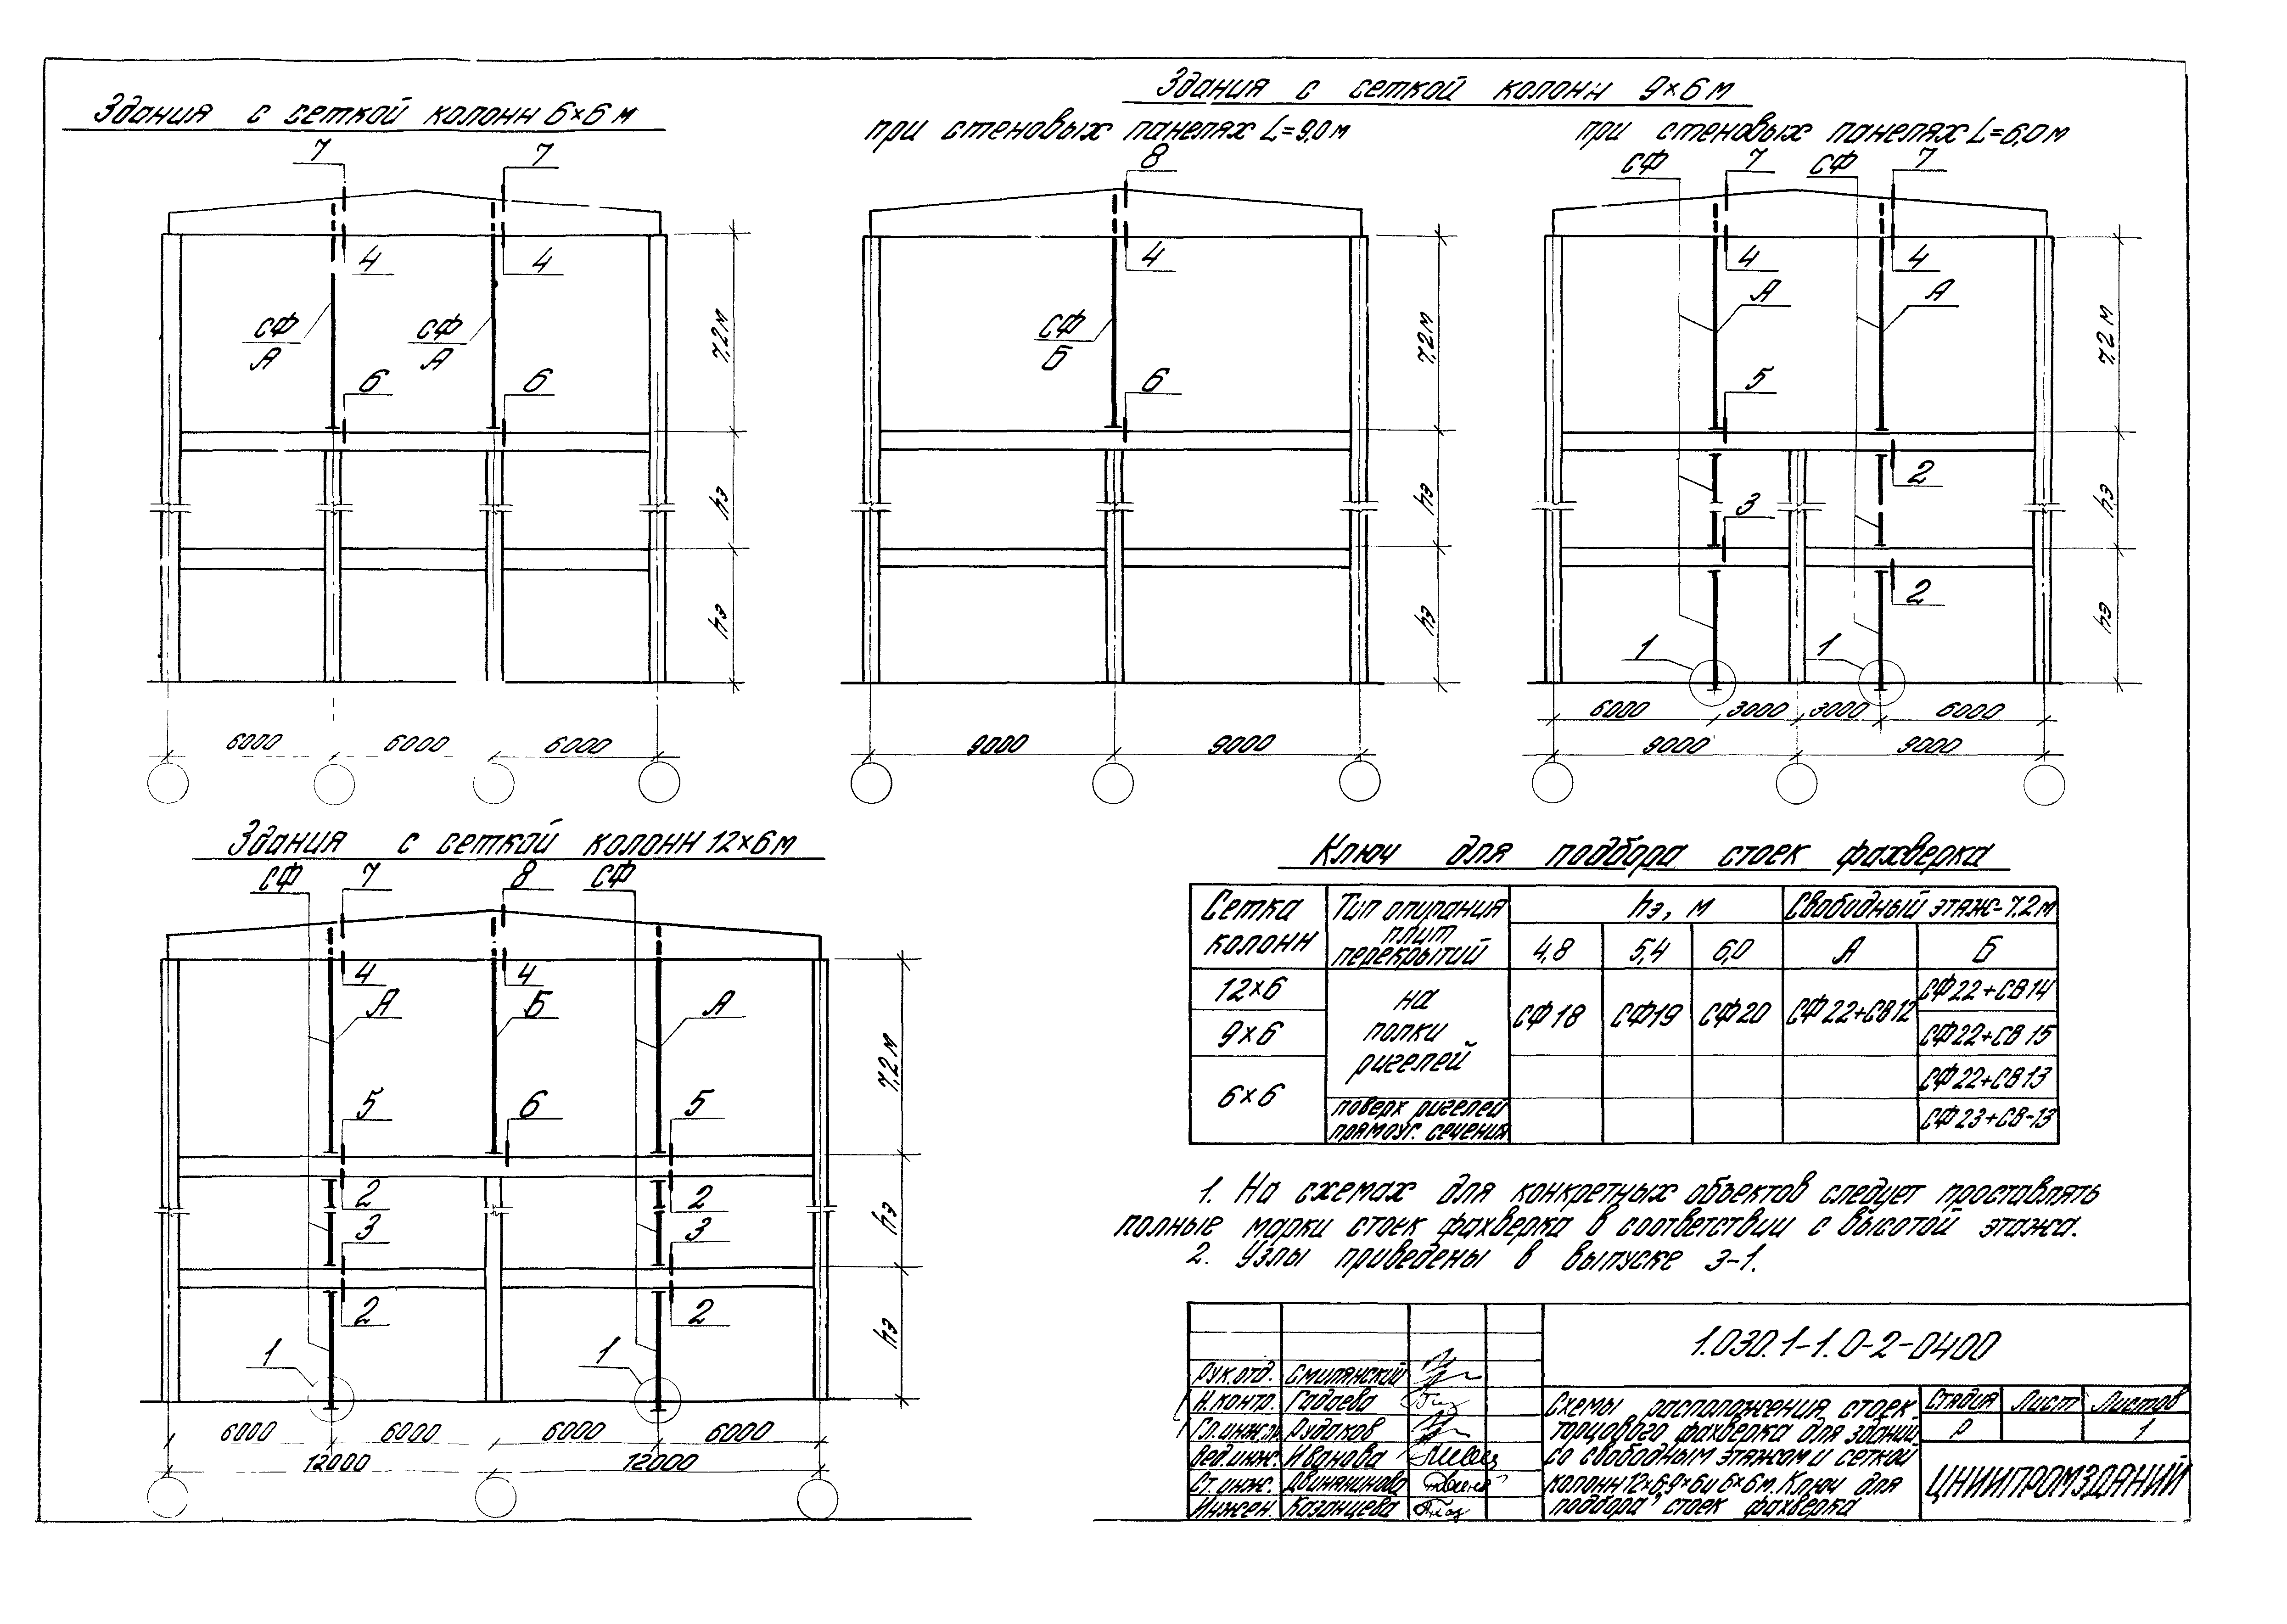 Здания с сеткой колонн 6×6 м
7
7
4
4
СФ
А
СФ
А
6
6
7,2м
hэ
hэ
6000
6000
6000
Здания с сеткой колонн 9×6 м
при стеновых панелях L=9,0 м
8
4
СФ
Б
6
7,2м
hэ
hэ
9000
9000
при стеновых панелях L=6,0 м
СФ
7
СФ
7
4
4
А
А
5
2
3
2
1
1
7,2 м
hэ
hэ
6000
3000
3000
6000
9000
9000
Здания с сеткой колонн 12×6 м
СФ
7
8
СФ
4
4
А
Б
А
5
6
5
2
2
3
3
2
2
1
1
7,2 м
hэ
hэ
6000
6000
6000
6000
12000
12000
Ключ для подбора стоек фахверка
Сетка колонн
Тип опирания плит перекрытий
hэ, м
Свободный этаж-7,2 м
4,8
5,4
6,0
А
Б
12×6
9×6
6×6
на полки ригелей
поверх ригелей прямоуг. сечения
СФ 18
СФ19
СФ 20
СФ 22+СВ12
СФ22+СВ14
СФ22+СВ 15
СФ22+СВ13
СФ23+СВ-13
1. На схемах для конкретных объектов следует проставлять
полные марки стоек фахверка в соответствии с высотой этажа.
2. Узлы приведены в выпуске 3-1.
1.030.1-1.0-2-0400
Рук.отд. Смилянский
Н.контр. Гадаева
Гл.инж.п. Рудаков
Вед.инж. Иванова
Ст.инж. Двинянинова
Инжен. Казанцева
Схемы расположения стоек
торцового фахверка для зданий
со свободным этажом и сеткой
колонн 12×6,9×6 и 6×6м. Ключ для
подбора стоек фахверка
Стадия Лист Листов
Р 1
ЦНИИПРОМЗДАНИЙ